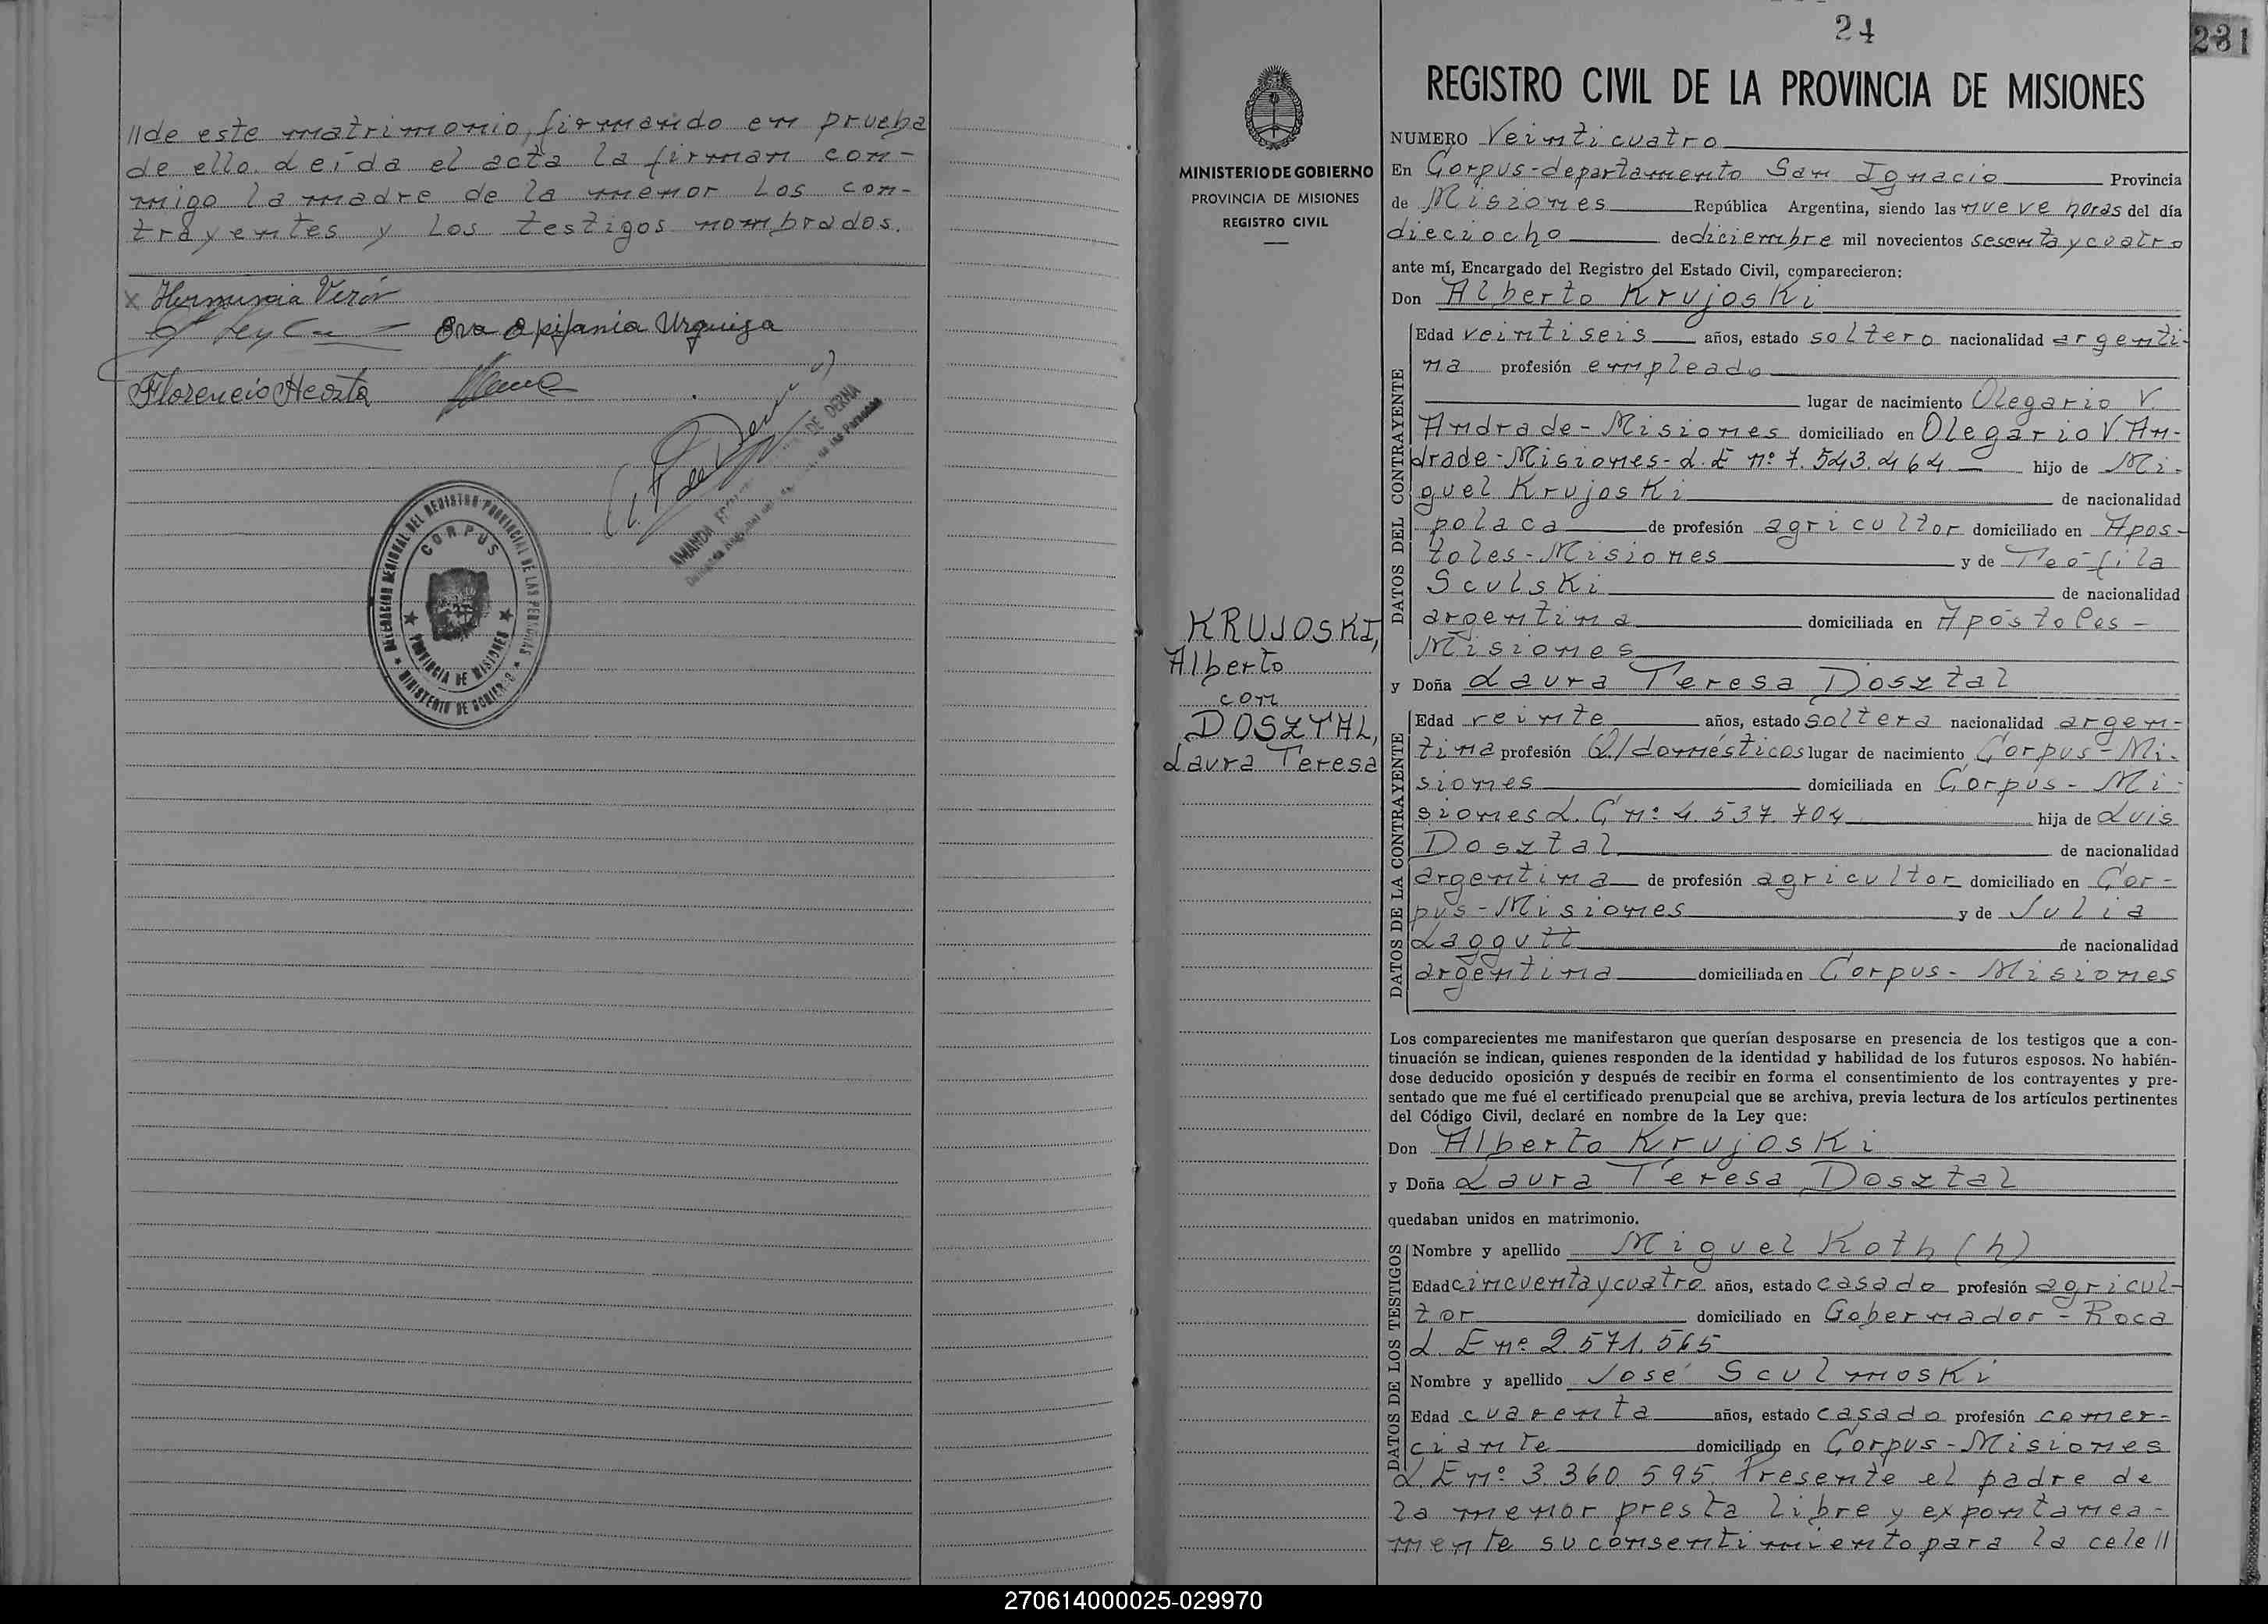 //de este matrimonio, firmando en prueba
de ello. Leída el acta la firman con-
migo la madre de la menor Los con-
trayentes y Los testigos nombrados.
x Herminia Verón
Eva Epifania Urquiza
Florencio Acosta
DELEGACION REGIONAL DEL REGISTRO PROVINCIAL DE LAS PERSONAS
CORPUS
PROVINCIA DE MISIONES
MINISTERIO DE GOBIERNO
AMANDA DE DERNA
de las Personas
24
231
MINISTERIO DE GOBIERNO
PROVINCIA DE MISIONES
REGISTRO CIVIL
KRUJOSKI,
Alberto
con
DOSZTAL,
Laura Teresa
REGISTRO CIVIL DE LA PROVINCIA DE MISIONES
NUMERO Veinticuatro
En Corpus-departamento San Ignacio Provincia
de Misiones República Argentina, siendo las nueve horas del día
dieciocho de diciembre mil novecientos sesenta y cuatro
ante mí, Encargado del Registro del Estado Civil, comparecieron:
Don Alberto Krujoski
DATOS DEL CONTRAYENTE
Edad veintiseis años, estado soltero nacionalidad argenti-
na profesión empleado
lugar de nacimiento Olegario V.
Andrade-Misiones domiciliado en Olegario V. An-
drade-Misiones-L.E nº 7.543.464 hijo de Mi-
guel Krujoski de nacionalidad
polaca de profesión agricultor domiciliado en Após-
toles-Misiones y de Teófila
Sculski de nacionalidad
argentina domiciliada en Apóstoles-
Misiones
y Doña Laura Teresa Dosztal
DATOS DE LA CONTRAYENTE
Edad veinte años, estado soltera nacionalidad argen-
tina profesión Q./domésticos lugar de nacimiento Corpus-Mi-
siones domiciliada en Corpus-Mi-
siones L.C nº 4.537.704 hija de Luis
Dosztal de nacionalidad
argentina de profesión agricultor domiciliado en Cor-
pus-Misiones y de Julia
Laggutt de nacionalidad
argentina domiciliada en Corpus-Misiones
Los comparecientes me manifestaron que querían desposarse en presencia de los testigos que a con-
tinuación se indican, quienes responden de la identidad y habilidad de los futuros esposos. No habién-
dose deducido oposición y después de recibir en forma el consentimiento de los contrayentes y pre-
sentado que me fué el certificado prenupcial que se archiva, previa lectura de los artículos pertinentes
del Código Civil, declaré en nombre de la Ley que:
Don Alberto Krujoski
y Doña Laura Teresa Dosztal
quedaban unidos en matrimonio.
DATOS DE LOS TESTIGOS
Nombre y apellido Miguel Koth (h)
Edad cincuenta y cuatro años, estado casado profesión agricul-
tor domiciliado en Gobernador-Roca
L.E nº 2.571.565
Nombre y apellido José Sculmoski
Edad cuarenta años, estado casado profesión comer-
ciante domiciliado en Corpus-Misiones
L.E nº 3.360.595. Presente el padre de
la menor presta libre y expontanea-
mente su consentimiento para la cele//
270614000025-029970